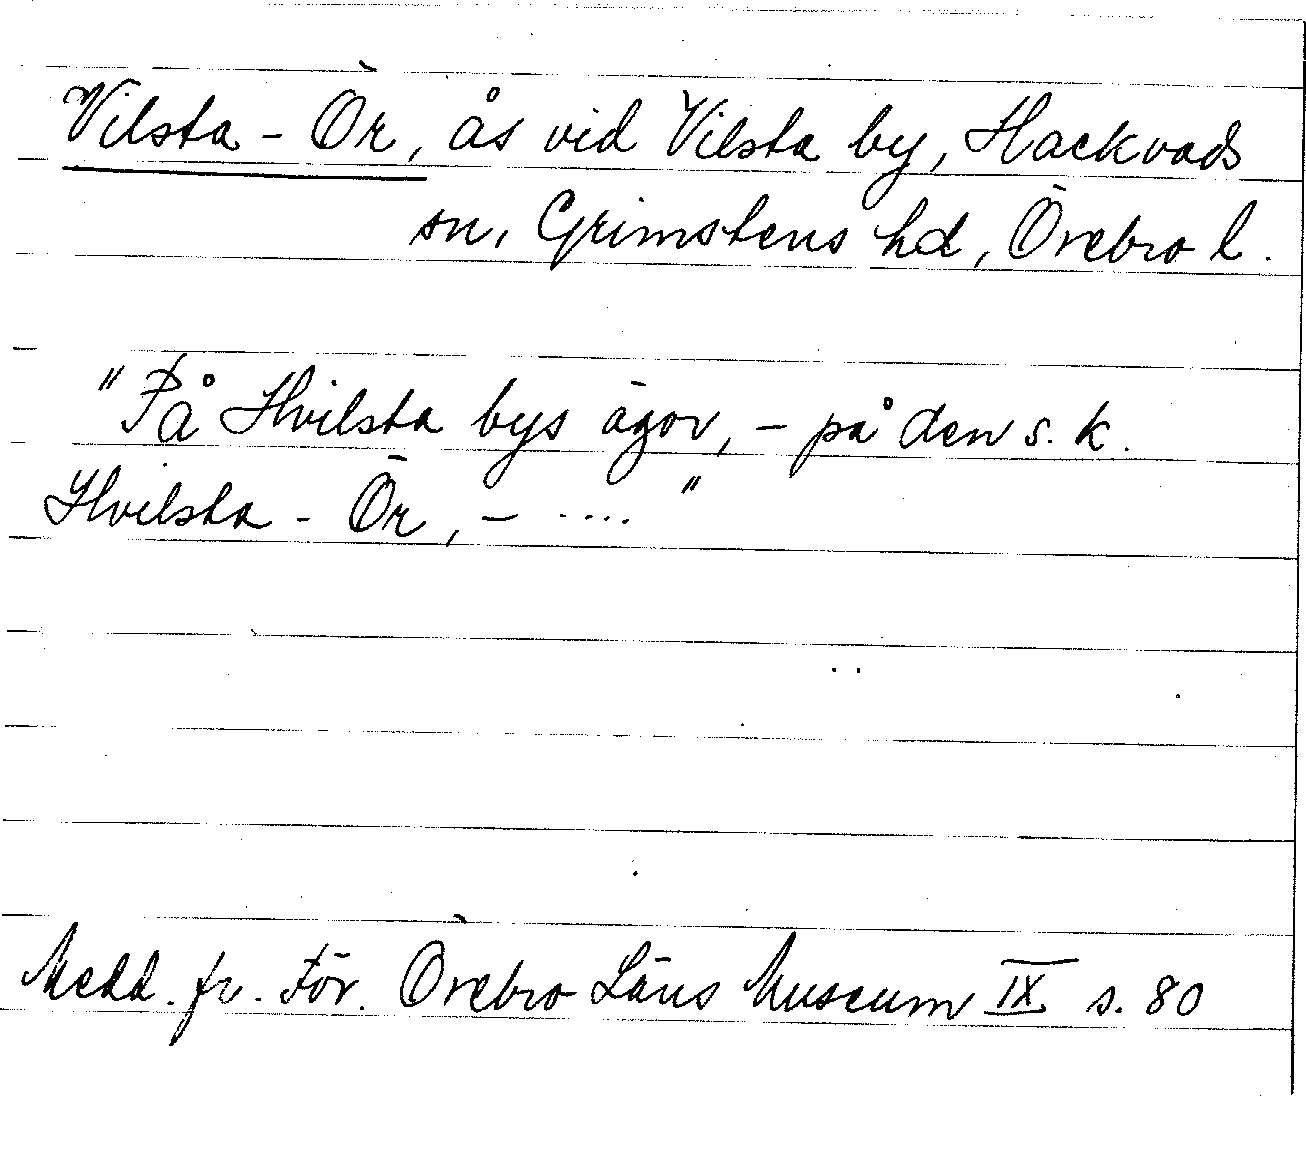 Vilsta - Ör, ås vid Vilsta by, Hackvads
sn, Grimstens hd, Örebro l.
"På Hvilsta bys ägor, - på den s. k.
Hvilsta - Ör, - ...."
Medd. fr. För. Örebro Läns Museum IX s. 80